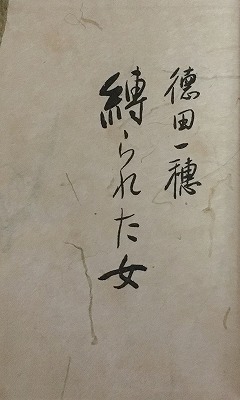 徳田一穂
縛られた女